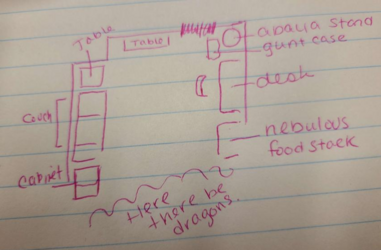 Table
Table
apalia stand
gunt case
desk
Couch
nebulous
food stack
cabinet
Here
there be
dragons.